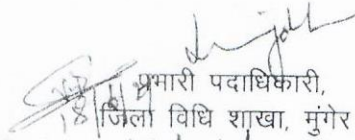 प्रभारी पदाधिकारी,
जिला विधि शाखा, मुंगेर